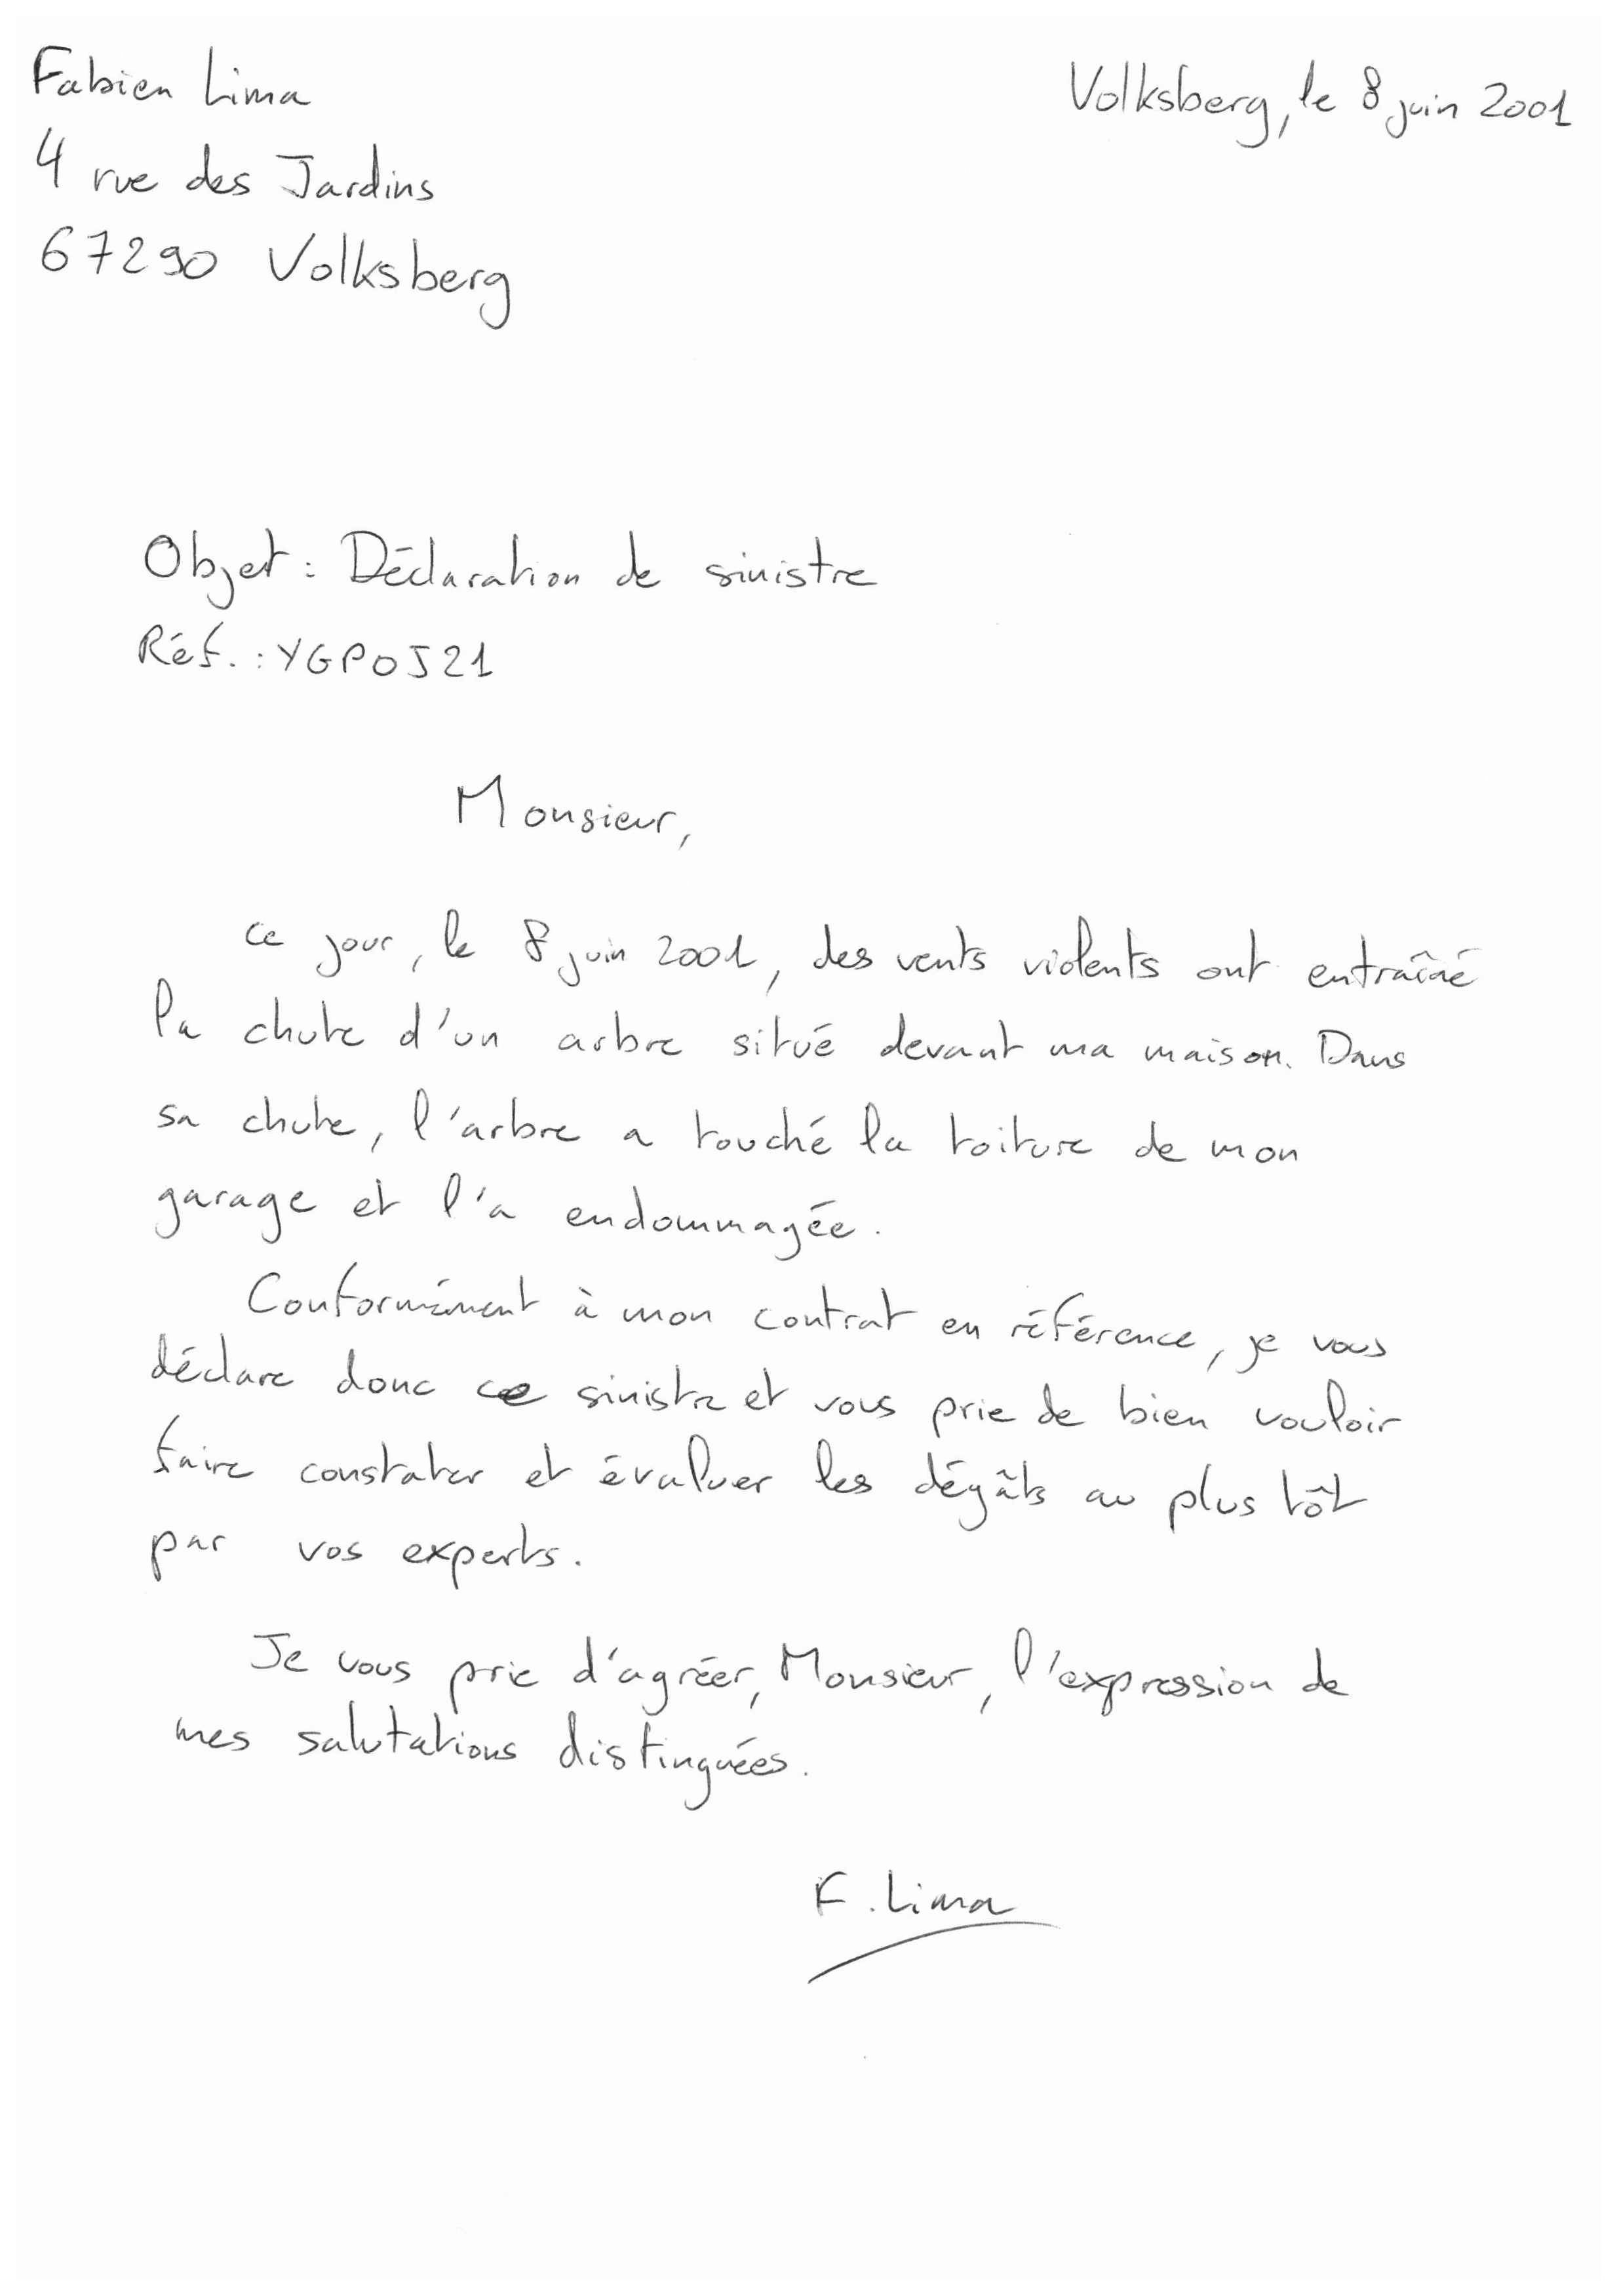 Fabien Lima
Volksberg, le 8 juin 2001
4 rue des Jardins
67290 Volksberg
Objet : Déclaration de sinistre
Réf. : YGPOJ21
Monsieur,
ce jour, le 8 juin 2001, des vents violents ont entraîné
la chute d'un arbre situé devant ma maison. Dans
sa chute, l'arbre a touché la toiture de mon
garage et l'a endommagée.
Conformément à mon contrat en référence, je vous
déclare donc ce sinistre et vous prie de bien vouloir
faire constater et évaluer les dégâts au plus tôt
par vos experts.
Je vous prie d'agréer, Monsieur, l'expression de
mes salutations distinguées.
F. Lima